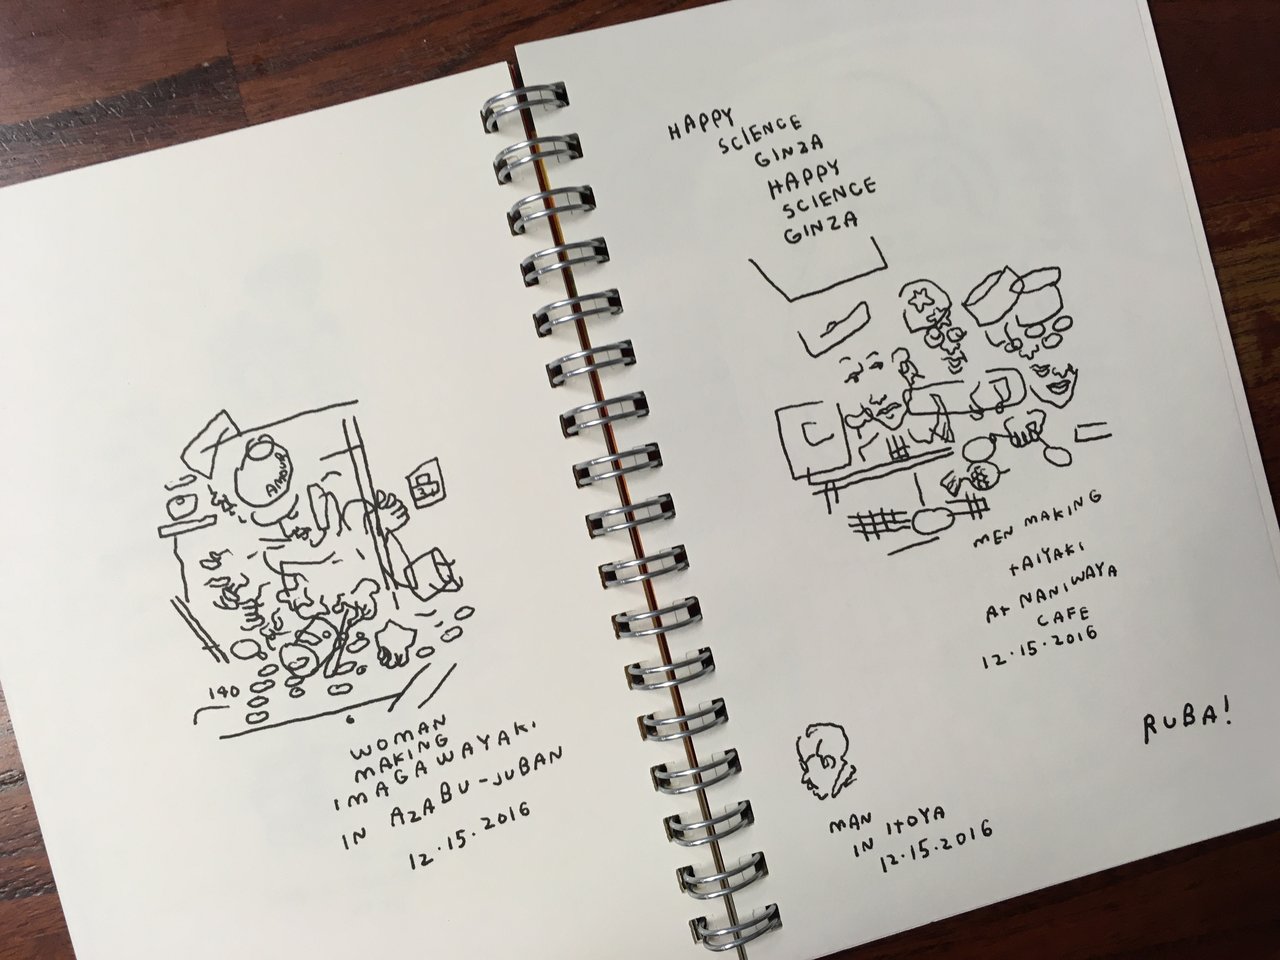 AMOUR
140
WOMAN
MAKING
IMAGAWAYAKI
IN AZABU-JUBAN
12.15.2016
HAPPY
SCIENCE
GINZA
HAPPY
SCIENCE
GINZA
MEN MAKING
tAIYAKI
At NANIWAYA
CAFE
12.15.2016
RUBA!
MAN
IN ItOYA
12.15.2016